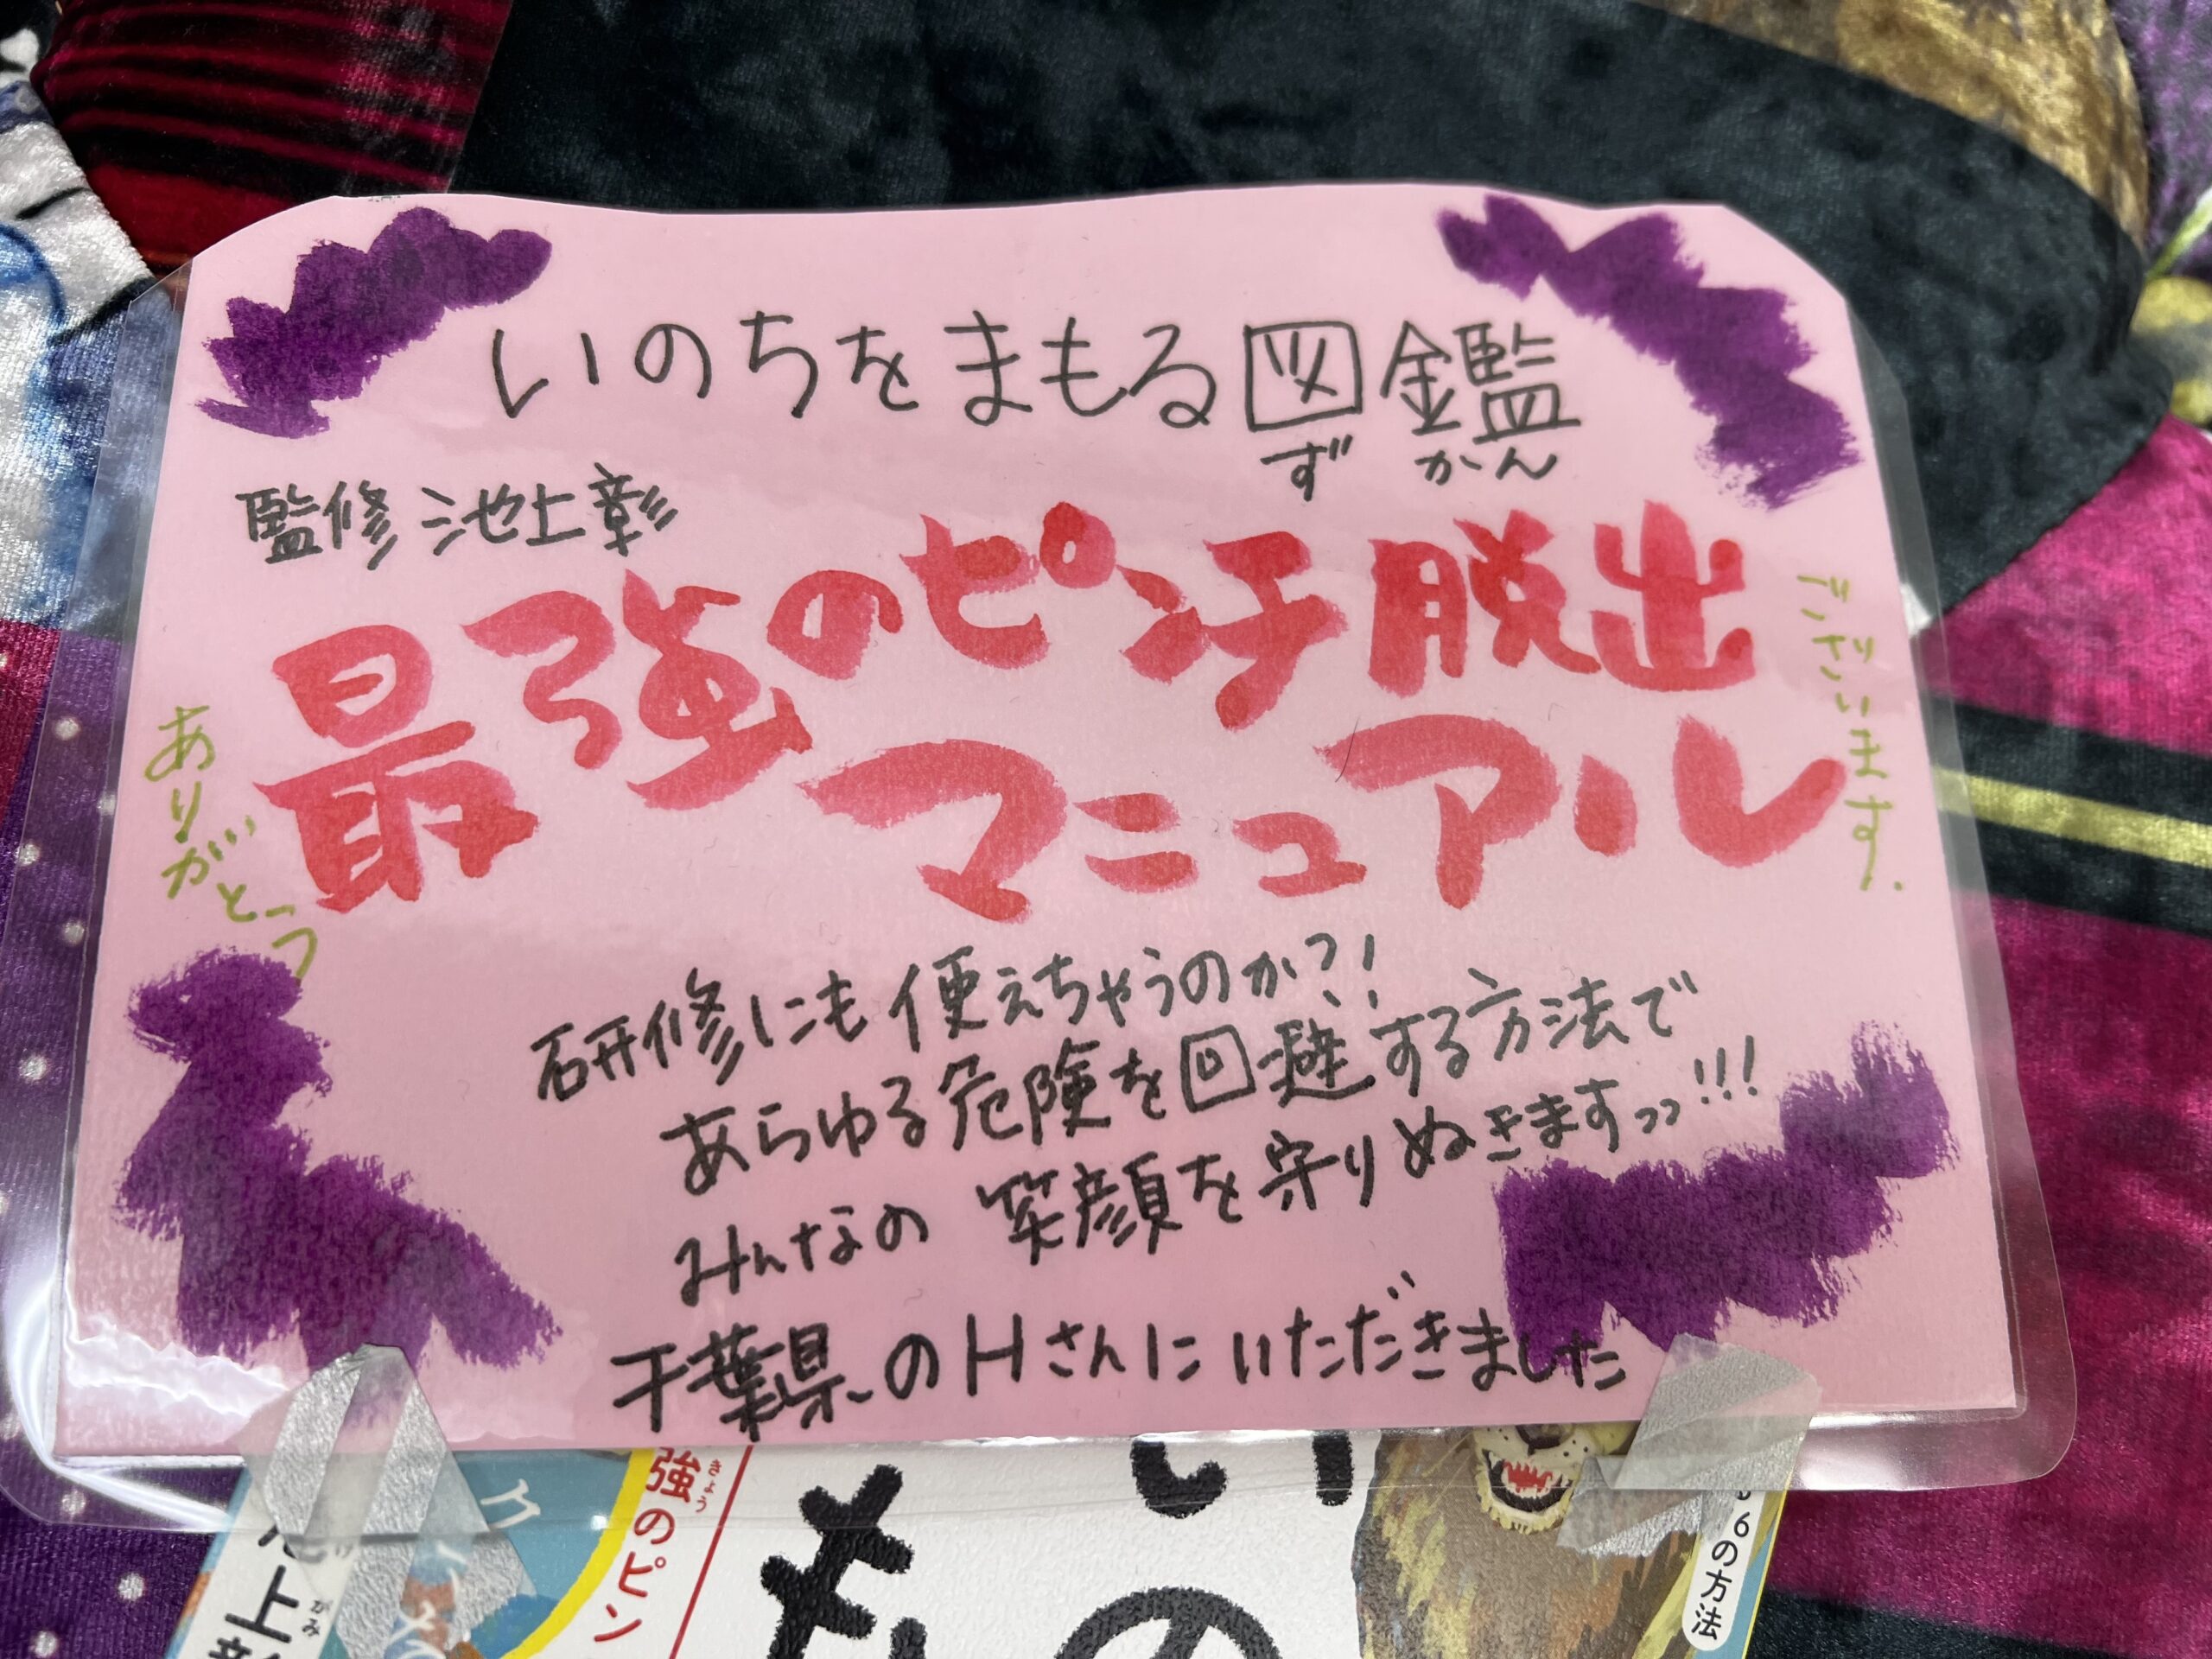 いのちをまもる図鑑
ずかん
監修 池上彰
最強のピンチ脱出
マニュアル
ありがとう
ございます.
研修にも使えちゃうのか?!
あらゆる危険を回避する方法で
みんなの笑顔を守りぬきますっっ!!!
千葉県のHさんにいただきました
強のピン
きょう
上
がみ
い
の
6の方法